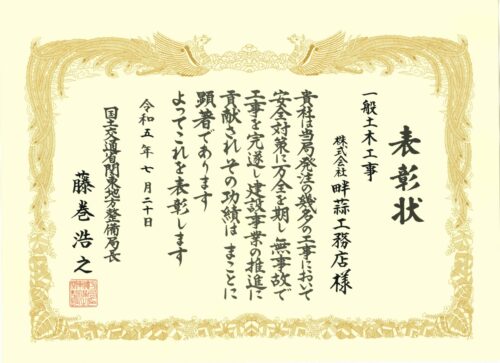 表彰状
一般土木工事
株式会社 畔蒜工務店様
貴社は当局発注の幾多の工事において
安全対策に万全を期し無事故で
工事を完遂し建設事業の推進に
貢献されその功績はまことに
顕著であります
よってこれを表彰します
令和五年七月二十日
国土交通省関東地方整備局長
藤巻浩之